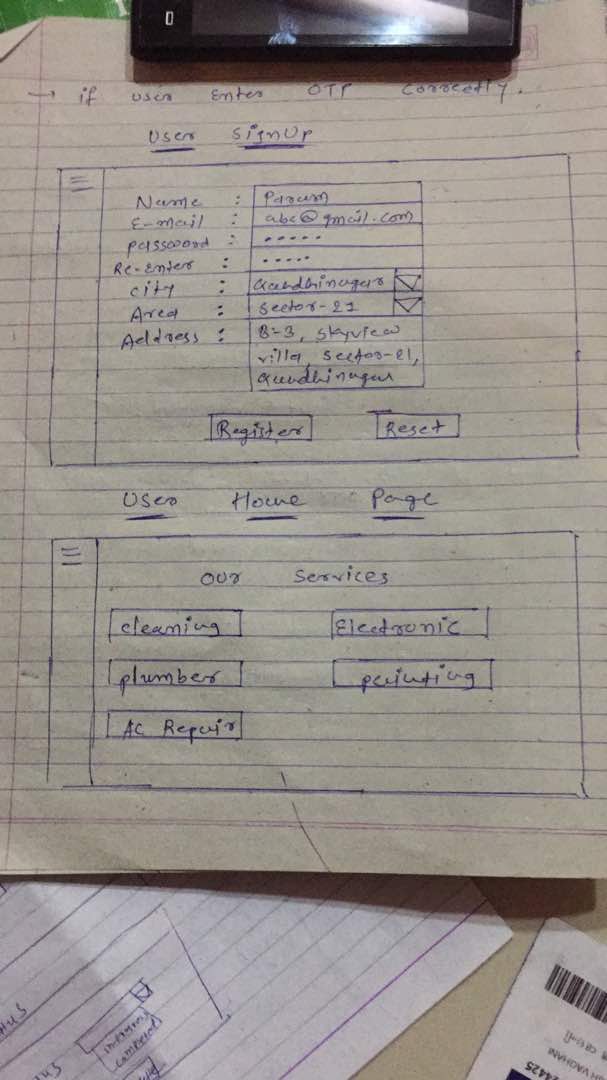 → if user Enter OTP correctly.
User SignUp
Name : Param
E-mail : abc@gmail.com
password : •••••
Re-Enter : •••••
city : Gandhinagar
Area : Sector-21
Address : B-3, Skyview
villa, Sector-21,
Gandhinagar
Register Reset
User Home Page
our Services
cleaning Electronic
plumber painting
AC Repair
24425
VAGHANI